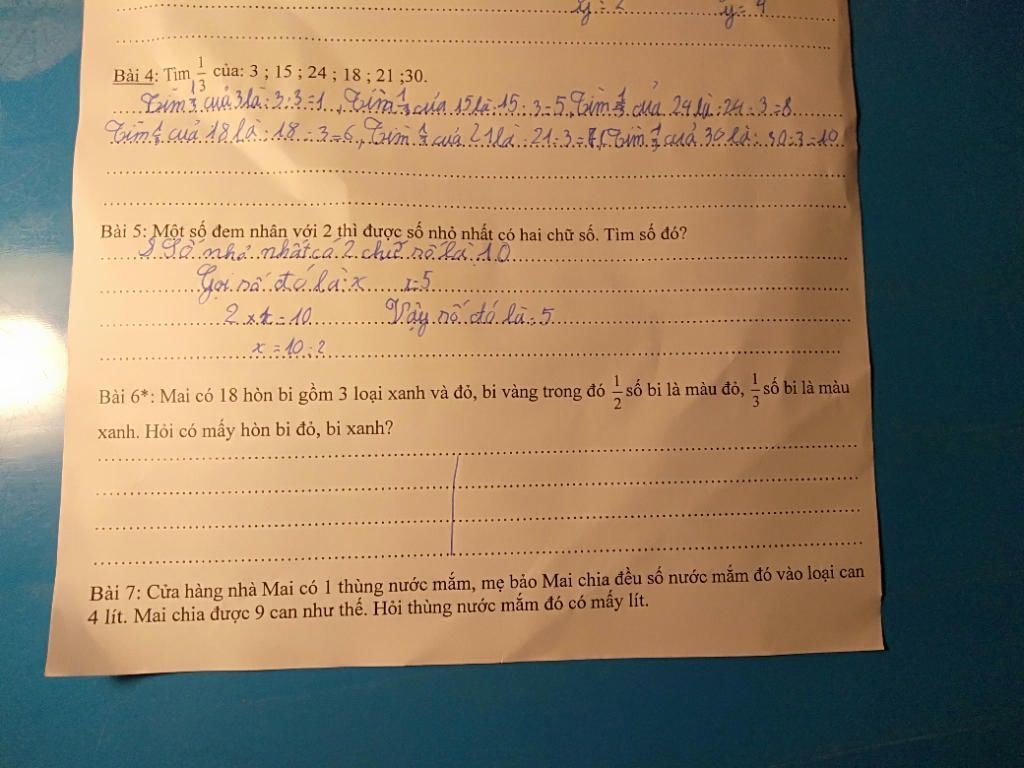 y = 4
Bài 4: Tìm 1/3 của: 3 ; 15 ; 24 ; 18 ; 21 ;30.
Tìm 1/3 cuả 3 là: 3:3=1, Tìm 1/3 của 15 là: 15:3=5, Tìm 1/3 của 24 là: 24:3=8
Tìm 1/3 cuả 18 là: 18:3=6, Tìm 1/3 cuả 21 là: 21:3=7, Tìm 1/3 cuả 30 là: 30:3=10
Bài 5: Một số đem nhân với 2 thì được số nhỏ nhất có hai chữ số. Tìm số đó?
Số nhỏ nhất có 2 chữ số là: 10
Gọi số đó là: x x=5
2 x x = 10 Vậy số đó là: 5
x = 10 : 2
Bài 6*: Mai có 18 hòn bi gồm 3 loại xanh và đỏ, bi vàng trong đó 1/2 số bi là màu đỏ, 1/3 số bi là màu
xanh. Hỏi có mấy hòn bi đỏ, bi xanh?
Bài 7: Cửa hàng nhà Mai có 1 thùng nước mắm, mẹ bảo Mai chia đều số nước mắm đó vào loại can
4 lít. Mai chia được 9 can như thế. Hỏi thùng nước mắm đó có mấy lít.